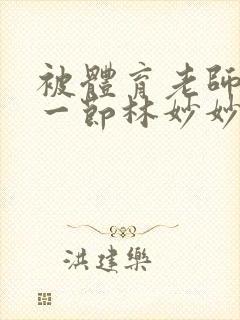 被體育老師
一節林妙妙
洪建樂